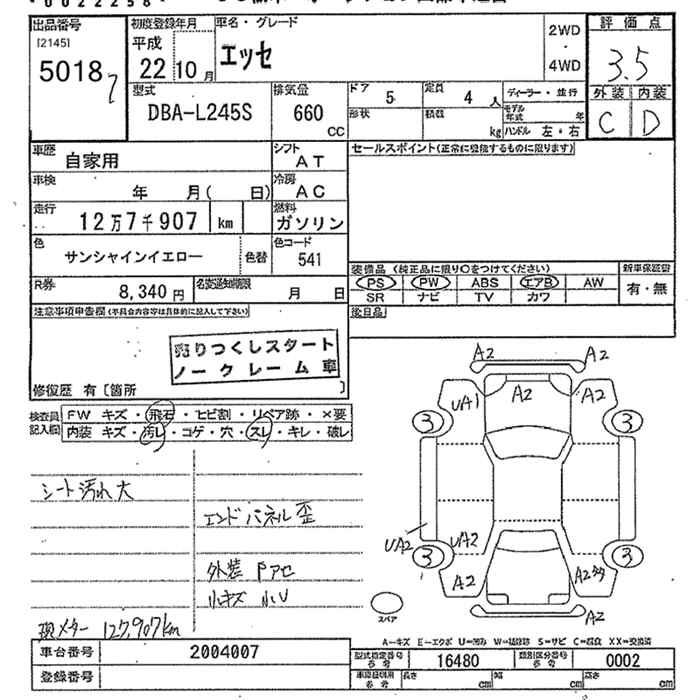 0022258
出品番号
[2145]
5018
7
初度登録年月
平成
22年10月
車名・グレード
エッセ
2WD
・
4WD
評価点
3.5
外装 内装
C D
型式
DBA-L245S
排気量
660
CC
ドア
5
定員
4人
形状
積載
kg
ディーラー・並行
モデル年式 年
ハンドル 左・右
車歴
自家用
シフト
AT
セールスポイント(正常に登能するものに限ります)
車検
年 月( 日)
冷房
AC
走行
12万7千907 km
燃料
ガソリン
色
サンシャインイエロー
色替
色コード
541
装備品 (純正品に限り〇をつけてください)
新車保証書
PS PW ABS エアB AW
有・無
SR ナビ TV カワ
R券
8,340円
名変通知期限
月 日
後日品
注意事項申告欄(不具合内容等は具体的に記入して下さい)
売りつくしスタート
ノークレーム車
修復歴 有[箇所 ]
検査員
記入欄
FW キズ・飛石・ヒビ割・リペア跡・×要
内装 キズ・汚レ・コゲ・穴・スレ・キレ・破レ
シート汚れ大
エンドパネル歪
外装 Pアセ
小キズ 小U
現メター 127,907km
A2 A2
UA1 A2 A2
3 3
UA2 UA2
3 3
A2 A2多
A2
スペア
A-キズ E-エクボ U=凹み W=補修跡 S=サビ C=腐食 XX=交換済
車台番号
2004007
登録番号
型式指定番号
参考
16480
類別区分番号
参考
0002
車庫証明用
参考
長さ cm
幅 cm
高さ cm